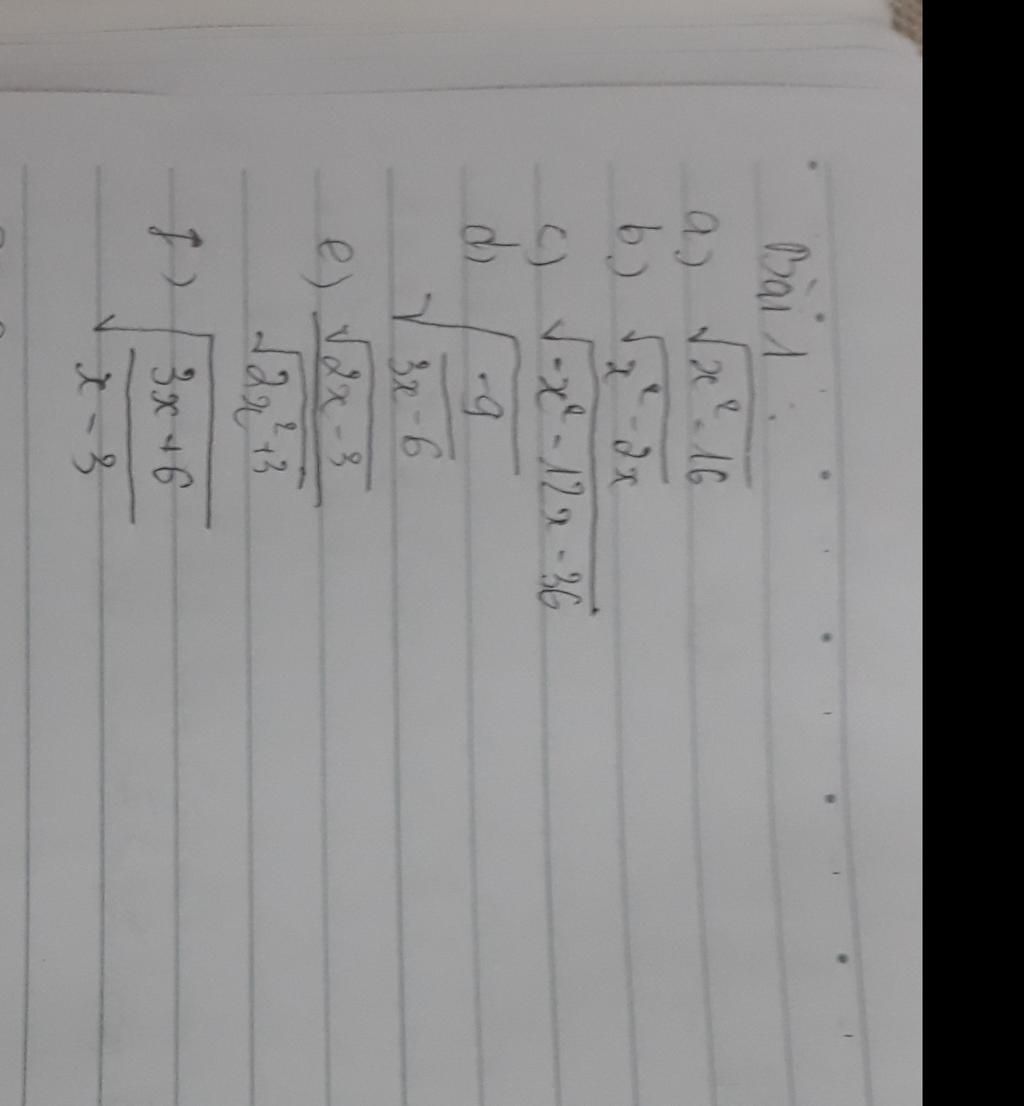 Bài 1:
a) √(x² - 16)
b) √(x² - 2x)
c) √(-x² - 12x - 36)
d) √(-9 / (3x - 6))
e) √(2x - 3) / √(2x² + 3)
f) √((3x + 6) / (x - 3))